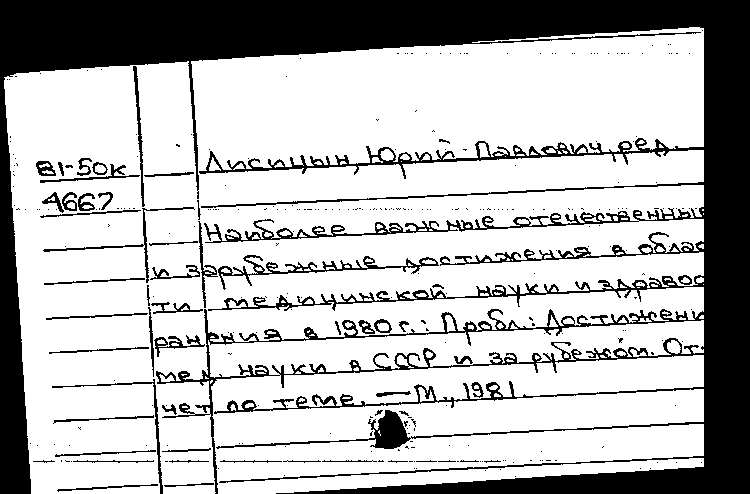 81-50к Лисицын, Юрий Павлович, ред.
4667
Наиболее важные отечественные
и зарубежные достижения в облас
ти медицинской науки и здравоо
ранения в 1980 г.: Пробл.: Достижени
мед. науки в СССР и за рубежом. От-
чет по теме. — М., 1981.